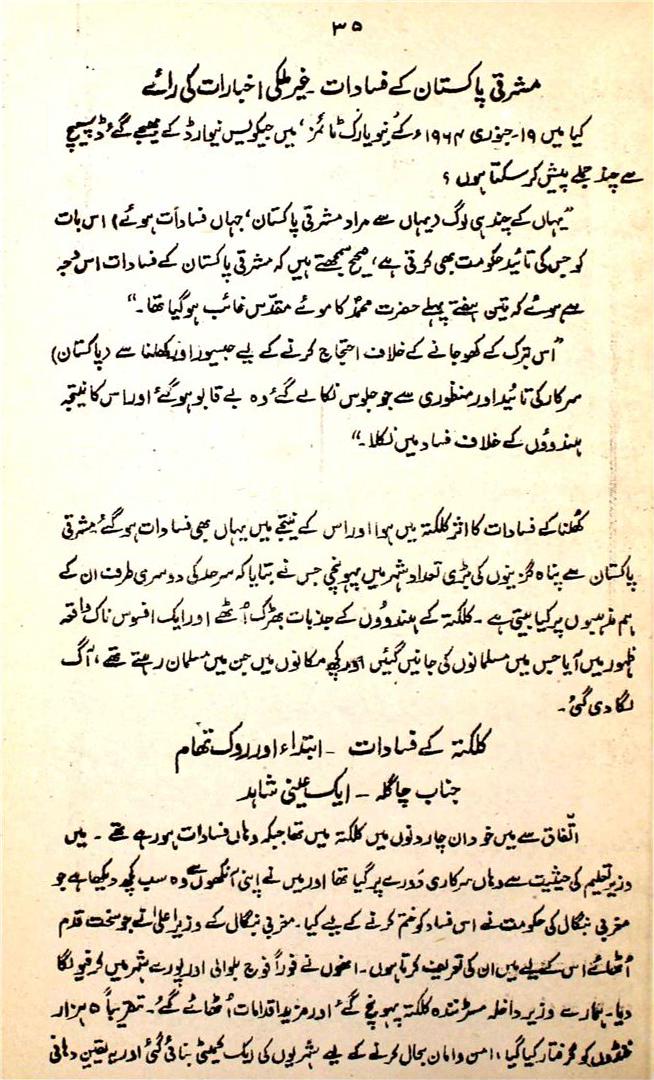 ۳۵
مشرقی پاکستان کے فسادات ۔ غیر ملکی اخبارات کی رائے
کیا میں ۱۹۔ جنوری ۱۹۶۴ء کے ’نیویارک ٹائمز‘ میں جیکویس نیوارڈ کے بھیجے گئے ڈسپیچ
سے چند جملے پیش کر سکتا ہوں ؟
”یہاں کے چند ہی لوگ (یہاں سے مراد مشرقی پاکستان، جہاں فسادات ہوئے) اس بات
کو جس کی تائید حکومت بھی کرتی ہے، صحیح سمجھتے ہیں کہ مشرقی پاکستان کے فسادات اس وجہ
سے ہوئے کہ تین ہفتے پہلے حضرت محمدؐ کا موئے مقدّس غائب ہو گیا تھا ۔“
”اس تبرّک کے کھو جانے کے خلاف احتجاج کرنے کے لیے جیسور اور کھلنا سے (پاکستان)
سرکار کی تائید اور منظوری سے جو جلوس نکالے گئے وہ بے قابو ہو گئے اور اس کا نتیجہ
ہندوؤں کے خلاف فساد میں نکلا ۔“
کھُلنا کے فسادات کا اثر کلکتہ میں ہوا اور اس کے نتیجے میں یہاں بھی فسادات ہو گئے، مشرقی
پاکستان سے پناہ گزینوں کی بڑی تعداد شہر میں پہونچی جس نے بتایا کہ سرحد کی دوسری طرف ان کے
ہم مذہبوں پر کیا بیتی ہے ۔ کلکتہ کے ہندوؤں کے جذبات بھڑک اُٹھے اور ایک افسوس ناک واقعہ
ظہور میں آیا جس میں مسلمانوں کی جانیں گئیں اور کچھ مکانوں میں جن میں مسلمان رہتے تھے، آگ
لگا دی گئی ۔
کلکتہ کے فسادات ۔ ابتداء اور روک تھام
جناب چاگلہ ۔ ایک عینی شاہد
اتّفاق سے میں خود ان چار دنوں میں کلکتہ میں تھا جبکہ وہاں فسادات ہو رہے تھے ۔ میں
وزیر تعلیم کی حیثیت سے وہاں سرکاری دَورے پر گیا تھا اور میں نے اپنی آنکھوں سے وہ سب کچھ دیکھا ہے جو
مغربی بنگال کی حکومت نے اس فساد کو ختم کرنے کے لیے کیا ۔ مغربی بنگال کے وزیر اعلیٰ نے جو سخت قدم
اُٹھائے اس کے لیے میں ان کی تعریف کرتا ہوں ۔ انھوں نے فوراً فوج بلوالی اور پورے شہر میں کرفیو لگا
دیا ۔ ہمارے وزیر داخلہ مسٹر نندہ کلکتہ پہونچ گئے اور مزید اقدامات اُٹھائے گئے ۔ تقریباً ۵ ہزار
غنڈوں کو گرفتار کیا گیا، امن و امان بحال کرنے کے لیے شہریوں کی ایک کمیٹی بنائی گئی اور یہ یقین دہانی